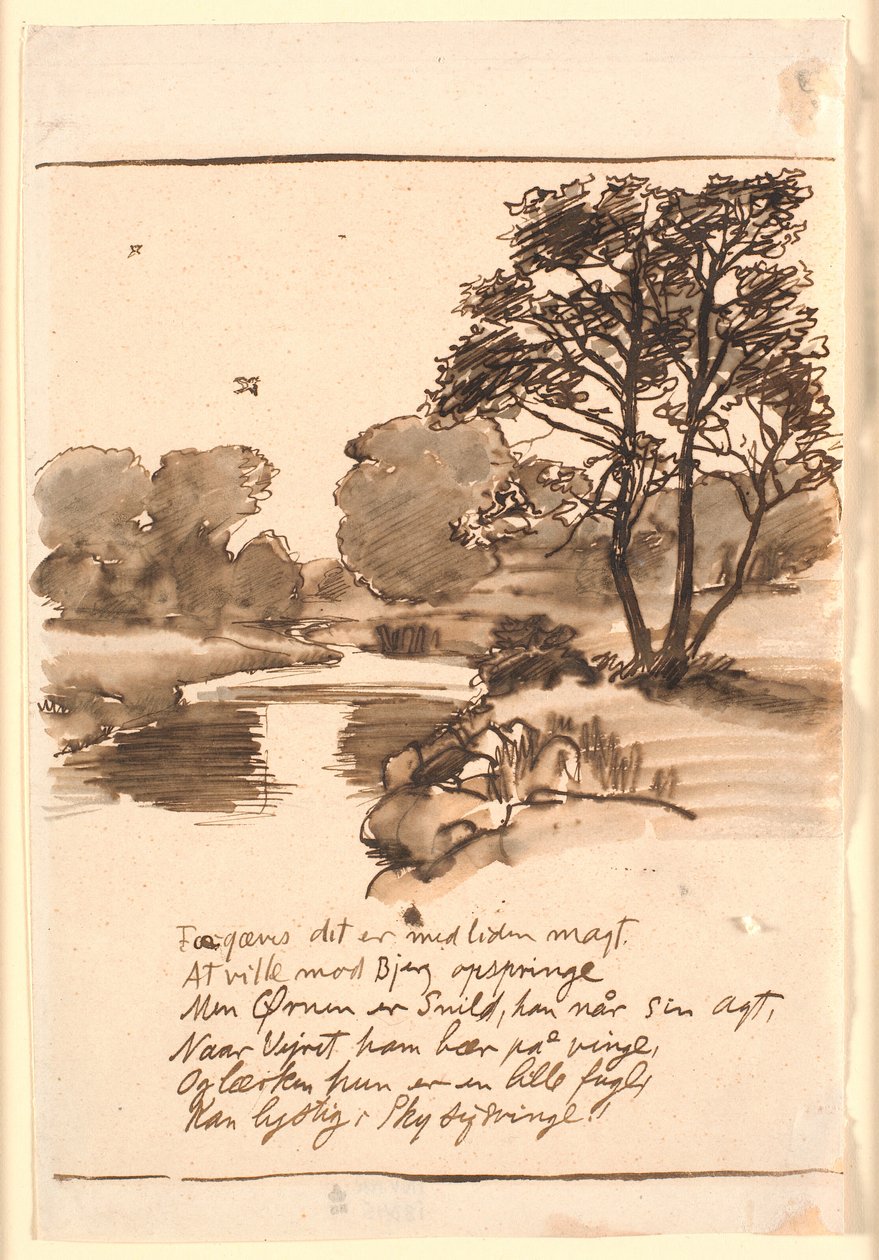 Forgæves det er med liden magt.
At ville mod Bjerg opspringe
Men Ørnen er Snild, han når sin agt,
Naar Vejret ham bær på vinge,
Og lærken hun er en lille fugl,
Kan lystig i Sky sig svinge!